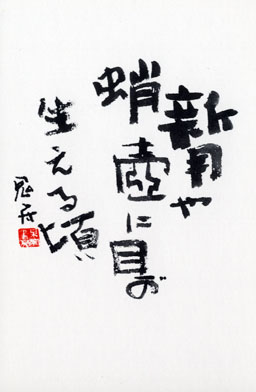 新月や
蛸壺に目が
生える頃